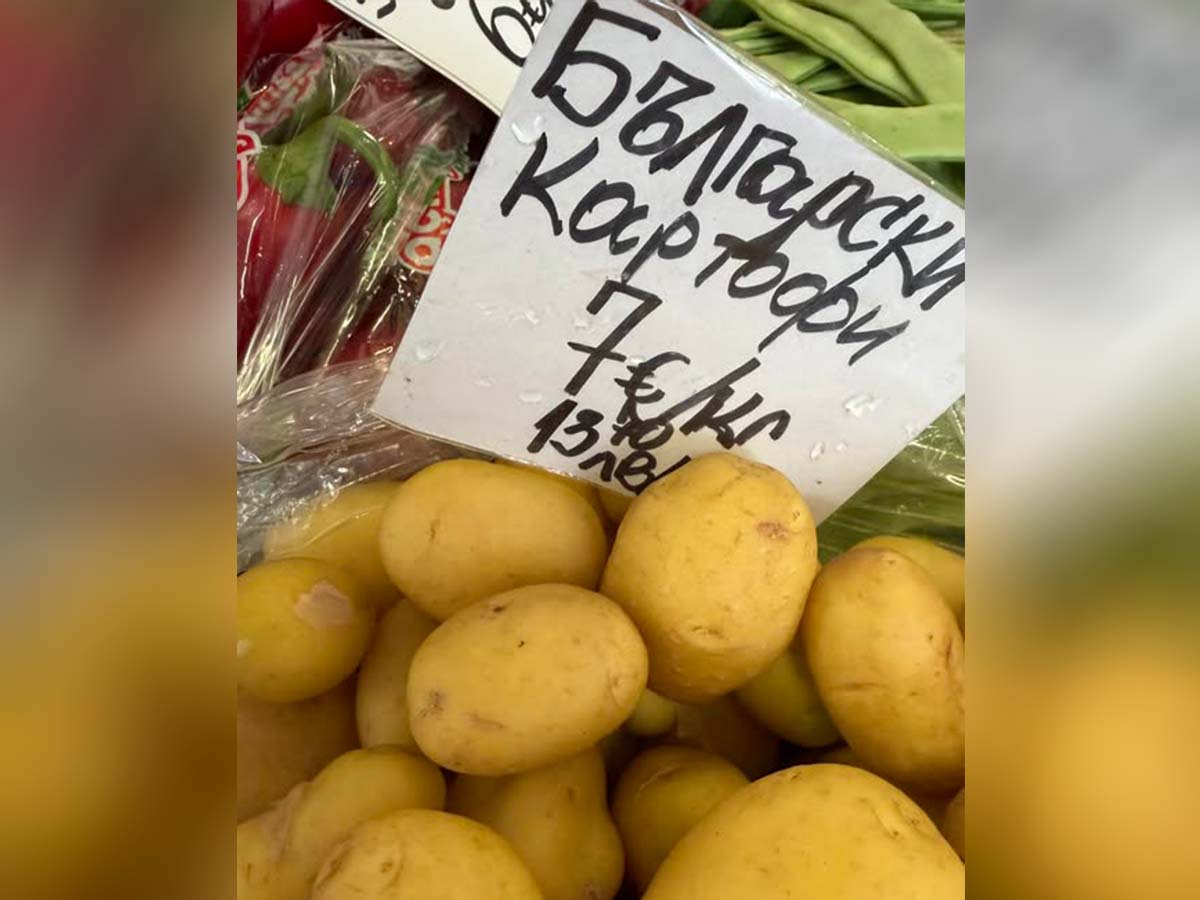 Български
Картофи
7 €/кг
13 70
лв/